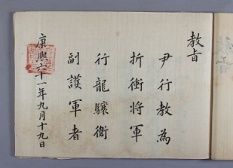 教旨
尹行教爲
折衝將軍
行龍驤衛
副護軍者
康熙六十一年九月十九日